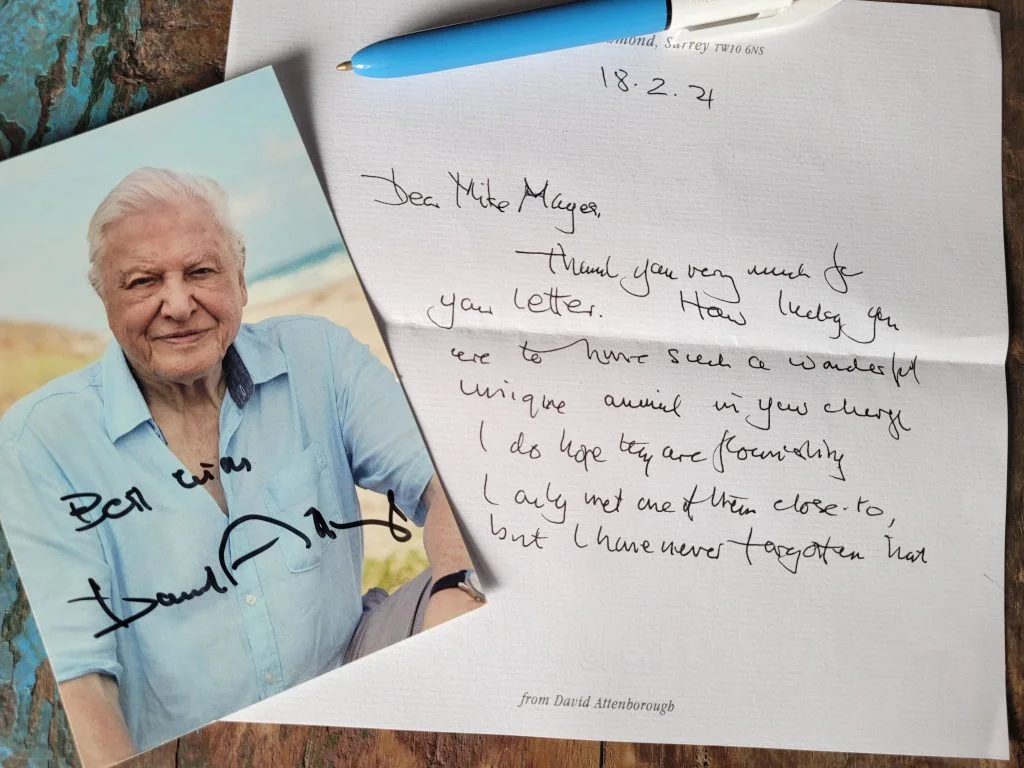 mond, Surrey TW10 6NS
18.2.21
Dear Mike Mayer,
Thank you very much for
your letter. How lucky you
are to have such a wonderful
unique animal in your charge
I do hope they are flourishing
I only met one of them close-to,
but I have never forgotten that
from David Attenborough
Best
David A